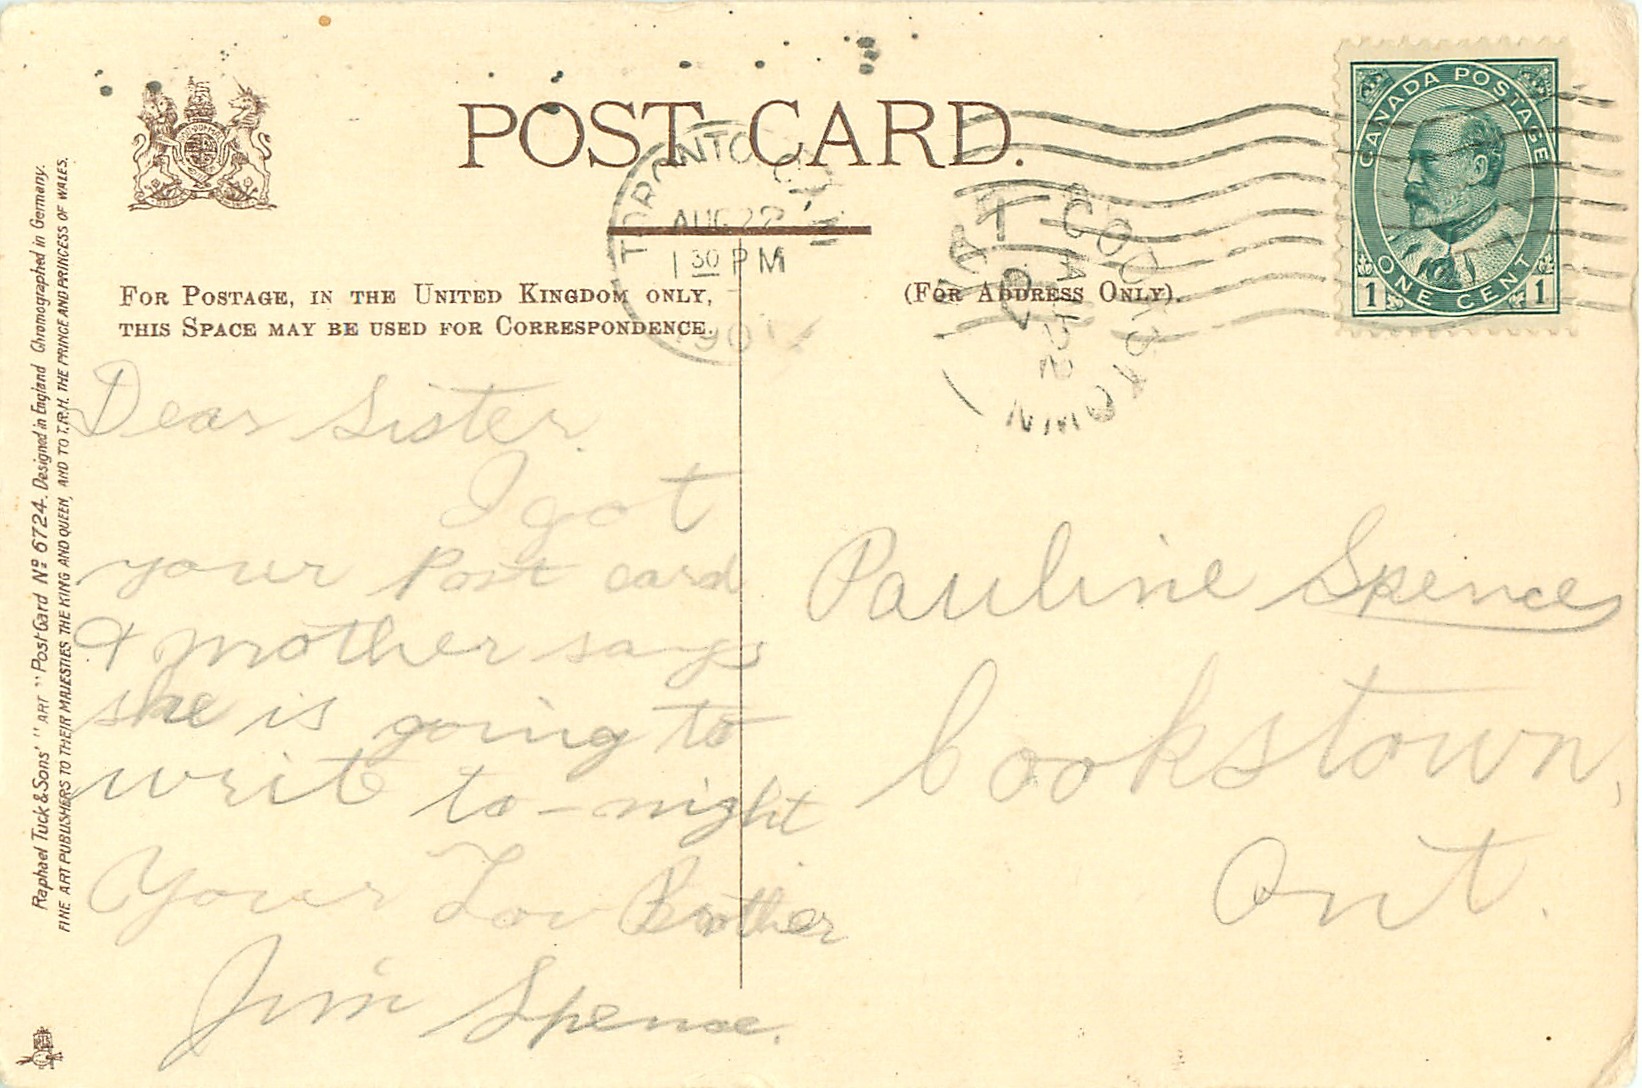 POST CARD.
CANADA POSTAGE
ONE CENT
1 1
TORONTO
AUG 22
1 30 PM
COOKSTOWN
FOR POSTAGE, IN THE UNITED KINGDOM ONLY,
THIS SPACE MAY BE USED FOR CORRESPONDENCE.
(FOR ADDRESS ONLY).
Dear Sister
I got
your Post card
& mother says
she is going to
write to-night
Your Lov Brother
Jim Spence.
Pauline Spence
Cookstown,
Ont.
Raphael Tuck & Sons' "ART" Post Card Nº 6724. Designed in England Chromographed in Germany.
FINE ART PUBLISHERS TO THEIR MAJESTIES THE KING AND QUEEN, AND TO T.R.H. THE PRINCE AND PRINCESS OF WALES.